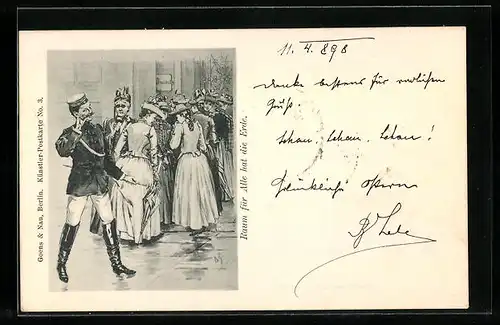 Goens & Nau, Berlin. Künstler-Postkarte No. 3.
Raum für Alle hat die Erde.
11. 4. 898
Danke bestens für
Gruß.
Schau, Schau, Schau!
Ostern